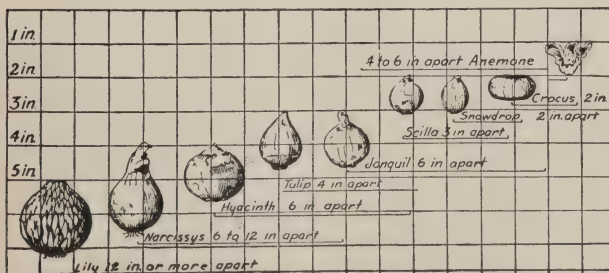 1 in.
2 in.
3 in.
4 in.
5 in.
4 to 6 in apart Anemone
Crocus, 2 in.
Snowdrop, 2 in. apart
Scilla 3 in apart
Jonquil 6 in apart
Tulip 4 in apart
Hyacinth 6 in apart
Narcissys 6 to 12 in apart
Lily 12 in. or more apart